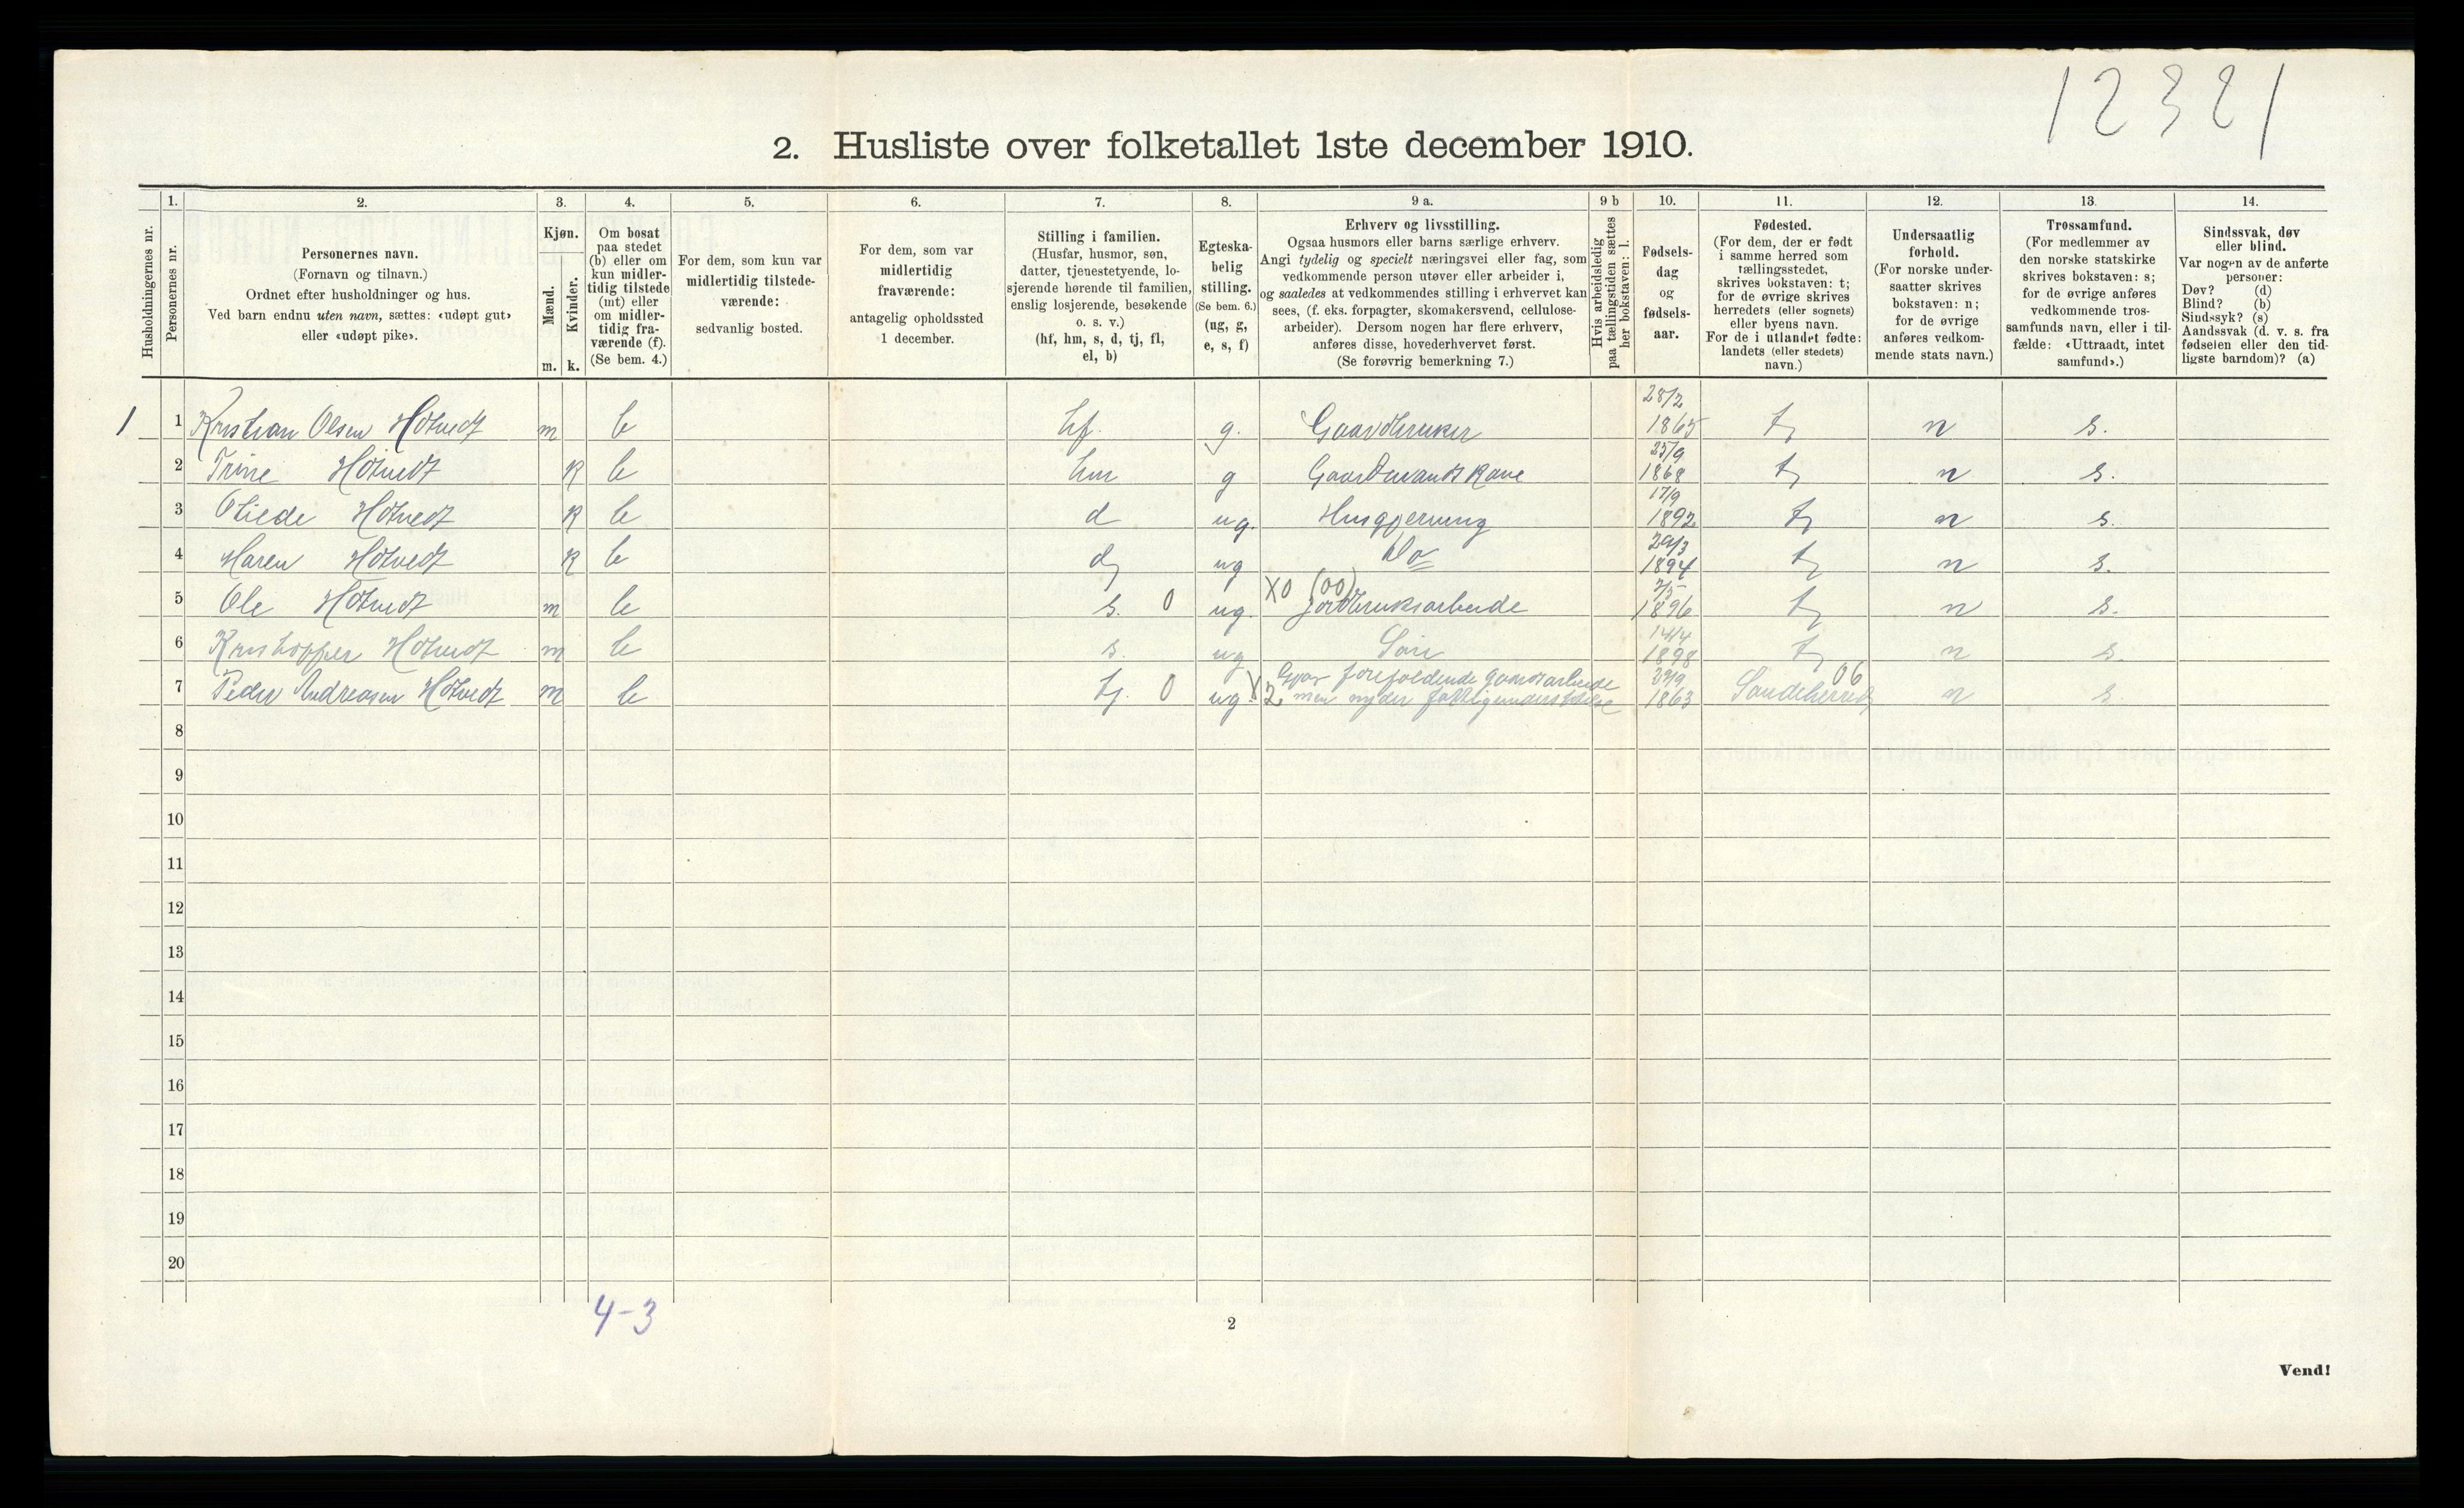 12321
2. Husliste over folketallet 1ste december 1910.
Husholdningernes nr.
1.
Personernes nr.
2.
Personernes navn.
(Fornavn og tilnavn.)
Ordnet efter husholdninger og hus.
Ved barn endnu uten navn, sættes: «udøpt gut»
eller «udøpt pike».
3.
Kjøn.
Mænd.
Kvinder.
m. k.
4.
Om bosat
paa stedet
(b) eller om
kun midler-
tidig tilstede
(mt) eller
om midler-
tidig fra-
værende (f).
(Se bem. 4.)
5.
For dem, som kun var
midlertidig tilstede-
værende:
sedvanlig bosted.
6.
For dem, som var
midlertidig
fraværende:
antagelig opholdssted
1 december.
7.
Stilling i familien.
(Husfar, husmor, søn,
datter, tjenestetyende, lo-
sjerende hørende til familien,
enslig losjerende, besøkende
o. s. v.)
(hf, hm, s, d, tj, fl,
el, b)
8.
Egteska-
belig
stilling.
(Se bem. 6.)
(ug, g,
e, s, f)
9 a.
Erhverv og livsstilling.
Ogsaa husmors eller barns særlige erhverv.
Angi tydelig og specielt næringsvei eller fag, som
vedkommende person utøver eller arbeider i,
og saaledes at vedkommendes stilling i erhvervet kan
sees, (f. eks. forpagter, skomakersvend, cellulose-
arbeider). Dersom nogen har flere erhverv,
anføres disse, hovederhvervet først.
(Se forøvrig bemerkning 7.)
9 b
Hvis arbeidsledig
paa tællingstiden sættes
her bokstaven: l.
10.
Fødsels-
dag
og
fødsels-
aar.
11.
Fødested.
(For dem, der er født
i samme herred som
tællingsstedet,
skrives bokstaven: t;
for de øvrige skrives
herredets (eller sognets)
eller byens navn.
For de i utlandet fødte:
landets (eller stedets)
navn.)
12.
Undersaatlig
forhold.
(For norske under-
saatter skrives
bokstaven: n;
for de øvrige
anføres vedkom-
mende stats navn.)
13.
Trossamfund.
(For medlemmer av
den norske statskirke
skrives bokstaven: s;
for de øvrige anføres
vedkommende tros-
samfunds navn, eller i til-
fælde: «Uttraadt, intet
samfund».)
14.
Sindssvak, døv
eller blind.
Var nogen av de anførte
personer:
Døv? (d)
Blind? (b)
Sindssyk? (s)
Aandssvak (d. v. s. fra
fødselen eller den tid-
ligste barndom)? (a)
1 1 Kristian Olsen Hotvedt m b hf. g. Gaardbruker 28/2 1865 t n s.
2 Trine Hotvedt k b hm g Gaardmandskone 25/9 1868 t n s.
3 Otilede Hotvedt k b d ug. Husgjerning 17/9 1892 t n s.
4 Maren Hotvedt k b d ug Do 29/3 1894 t n s.
5 Ole Hotvedt m b s. 0 ug. X0 (00) jordbruksarbeide 7/5 1896 t n s.
6 Kristoffer Hotvedt m b s. ug Søn 14/4 1898 t n s.
7 Peder Andreasen Hotvedt m b tj. 0 ug X2 Gjør forefaldende gaardsarbeide
men nyder fattigunderstøttelse 29/9 1863 Sandeherred 06 n s.
8
9
10
11
12
13
14
15
16
17
18
19
20
4-3
2
Vend!